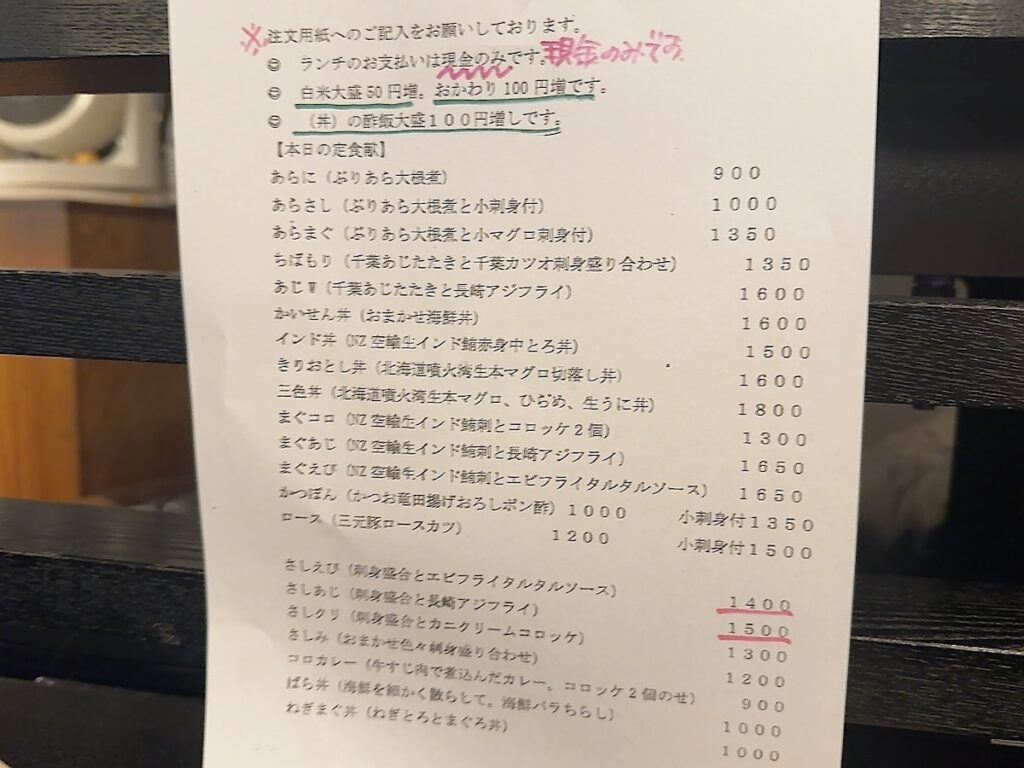 ※注文用紙へのご記入をお願いしております。
☺ ランチのお支払いは現金のみです。現金のみです。
☺ 白米大盛50円増。おかわり100円増です。
☺ （丼）の酢飯大盛１００円増しです。
【本日の定食献】
あらに（ぶりあら大根煮） ９００
あらさし（ぶりあら大根煮と小刺身付） １０００
あらまぐ（ぶりあら大根煮と小マグロ刺身付） １３５０
ちばもり（千葉あじたたきと千葉カツオ刺身盛り合わせ） １３５０
あじW（千葉あじたたきと長崎アジフライ） １６００
かいせん丼（おまかせ海鮮丼） １６００
インド丼（NZ空輸生インド鮪赤身中とろ丼） １５００
きりおとし丼（北海道噴火湾生本マグロ切落し丼） １６００
三色丼（北海道噴火湾生本マグロ、ひらめ、生うに丼） １８００
まぐコロ（NZ空輸生インド鮪刺とコロッケ２個） １３００
まぐあじ（NZ空輸生インド鮪刺と長崎アジフライ） １６５０
まぐえび（NZ空輸生インド鮪刺とエビフライタルタルソース） １６５０
かつぽん（かつお竜田揚げおろしポン酢）１０００ 小刺身付１３５０
ロース（三元豚ロースカツ） １２００ 小刺身付１５００
さしえび（刺身盛合とエビフライタルタルソース） １４００
さしあじ（刺身盛合と長崎アジフライ） １５００
さしクリ（刺身盛合とカニクリームコロッケ） １３００
さしみ（おまかせ色々刺身盛り合わせ） １２００
コロカレー（牛すじ肉で煮込んだカレー。コロッケ２個のせ） ９００
ばら丼（海鮮を細かく散らして。海鮮バラちらし） １０００
ねぎまぐ丼（ねぎとろとまぐろ丼） １０００